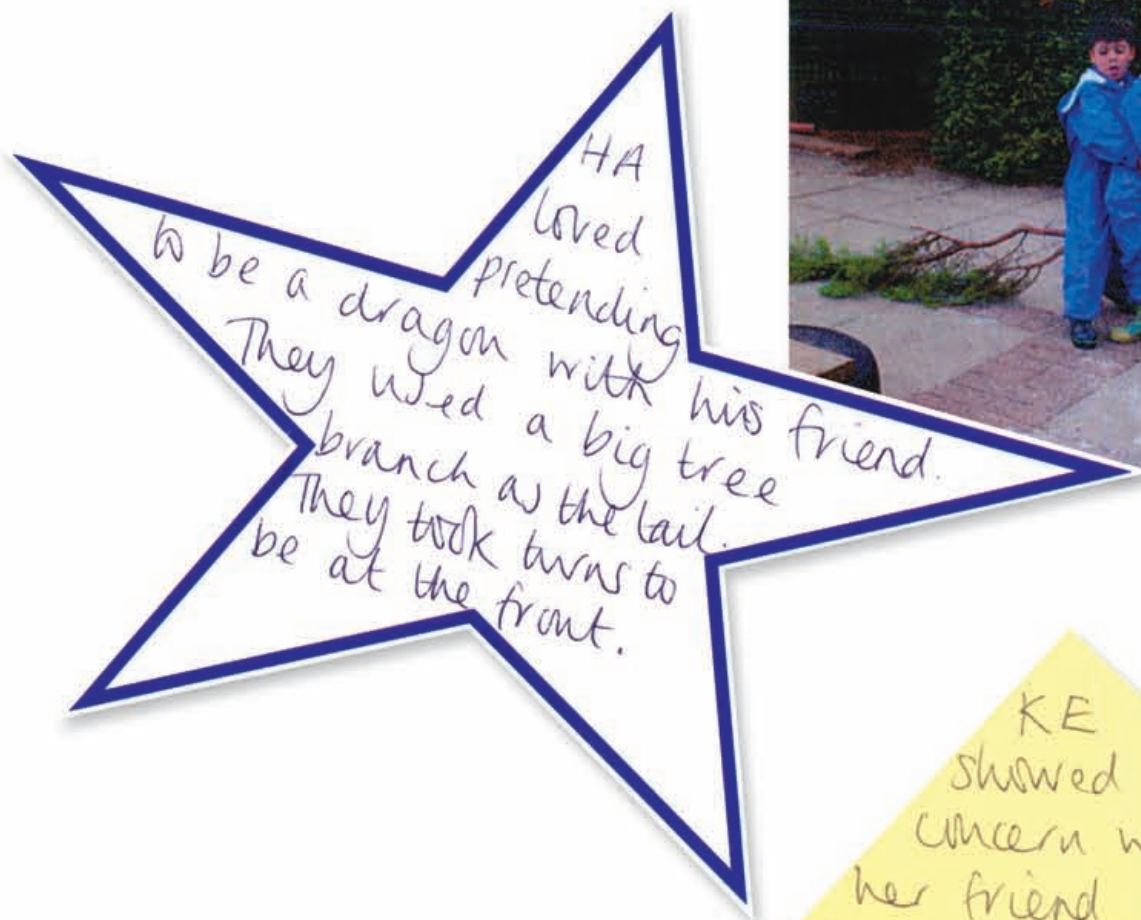 HA
loved
pretending
to be a dragon with his friend.
They used a big tree
branch as the tail.
They took turns to
be at the front.
KE
showed
concern w
her friend